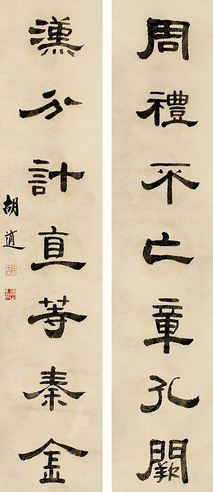 周禮不亡章孔闕
漢分計直等秦金
胡逍
胡